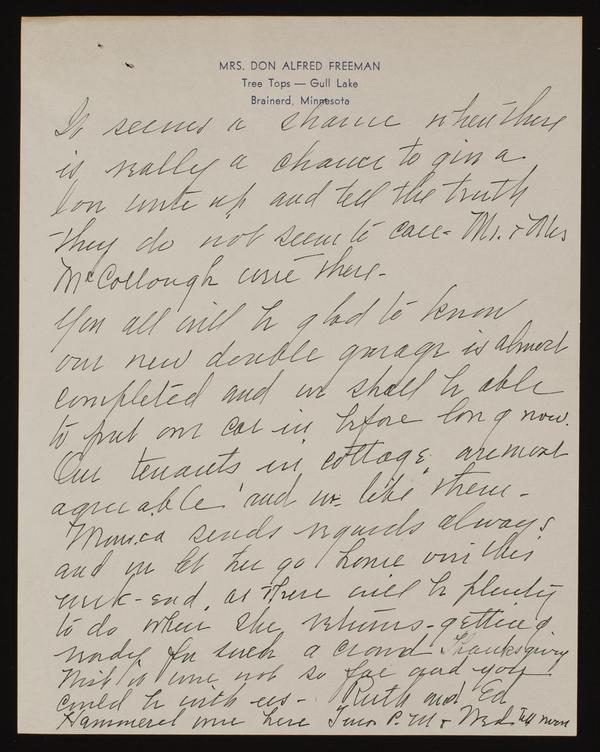 MRS. DON ALFRED FREEMAN
Tree Tops — Gull Lake
Brainerd, Minnesota
It seems a shame when there
is really a chance to give a
write up and tell the truth
they do not seem to care - Mr. & Mrs
McCollough were there -
You all will be glad to know
our new double garage is almost
completed and we shall be able
to put our car in before long now.
Our tenants in cottage are most
agreeable and we like them -
Monica sends regards always
and we let her go home over this
week-end, as there will be plenty
to do when she returns - getting
ready for such a crowd Thanksgiving
Wish it were not so far and you
could be with us - Ruth and Ed
Hammerel were here Tues P.M & Wed till noon